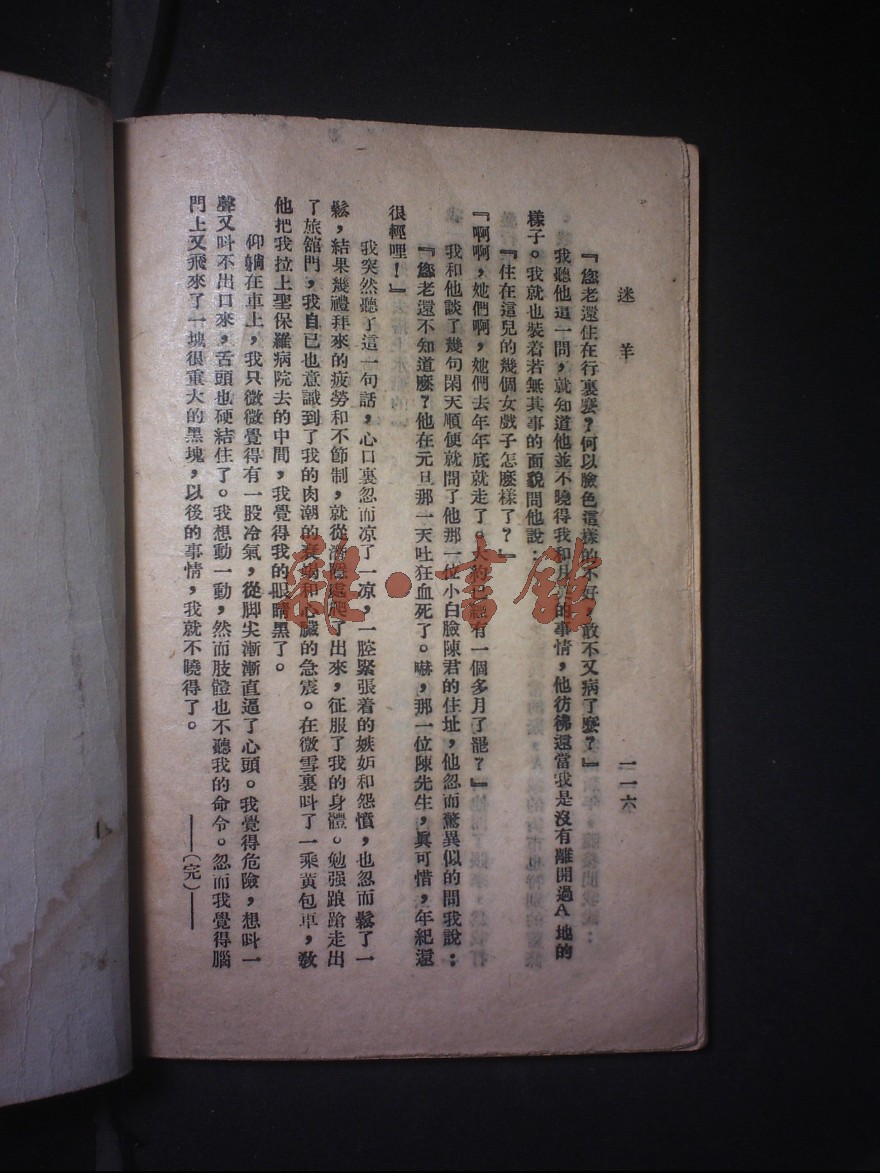 迷羊
一一六
『您老還住在行裏麽?何以臉色這樣的不好,敢不又病了麽?』
我聽他這一問,就知道他並不曉得我和月的事情,他彷彿還當我是沒有離開過A地的
樣子。我就也裝着若無其事的面貌問他說:
『住在這兒的幾個女戲子怎麽樣了?』
『啊啊,她們啊,她們去年年底就走了。大約已經有一個多月了罷?』
我和他談了幾句閑天順便就問了他那一位小白臉陳君的住址,他忽而驚異似的問我說:
『您老還不知道麽?他在元旦那一天吐狂血死了。嚇,那一位陳先生,眞可惜,年紀還
很輕哩!』
我突然聽了這一句話,心口裏忽而凉了一凉,一腔緊張着的嫉妬和怨憤,也忽而鬆了一
鬆,結果幾禮拜來的疲勞和不節制,就從潛隱處爬了出來,征服了我的身體。勉强踉蹌走出
了旅館門,我自已也意識到了我的肉潮的衰竭和心臟的急震。在微雪裏呌了一乘黃包車,敎
他把我拉上聖保羅病院去的中間,我覺得我的眼睛黑了。
仰躺在車上,我只微微覺得有一股冷氣,從脚尖漸漸直逼了心頭。我覺得危險,想呌一
聲又呌不出口來,舌頭也硬結住了。我想動一動,然而肢體也不聽我的命令。忽而我覺得腦
門上又飛來了一塊很重大的黑塊,以後的事情,我就不曉得了。
——(完)——
雜·書館